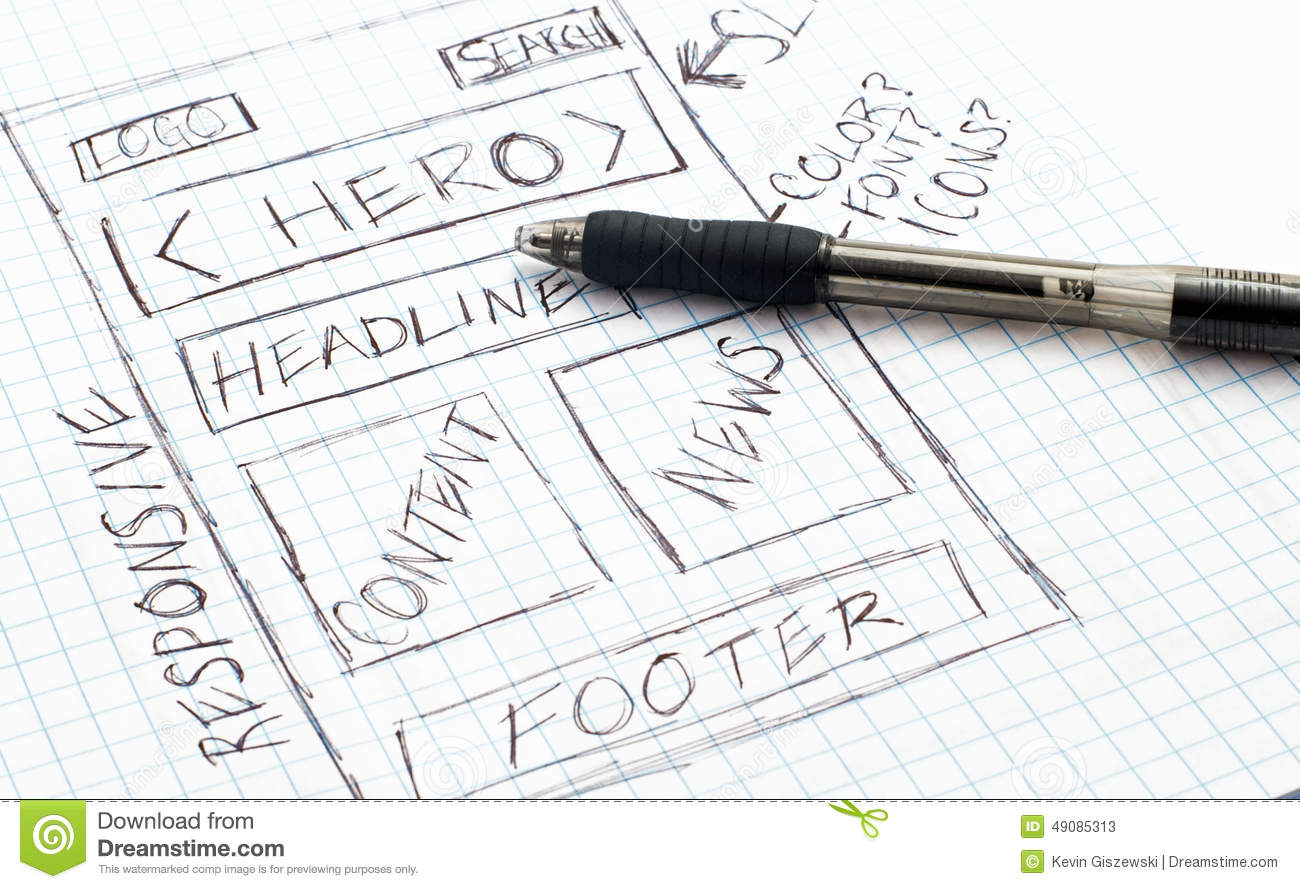 SEARCH
LOGO
< HERO >
COLOR?
FONT?
ICONS?
HEADLINE
NEWS
CONTENT
RESPONSIVE
FOOTER
Download from
Dreamstime.com
This watermarked comp image is for previewing purposes only.
ID 49085313
© Kevin Giszewski | Dreamstime.com